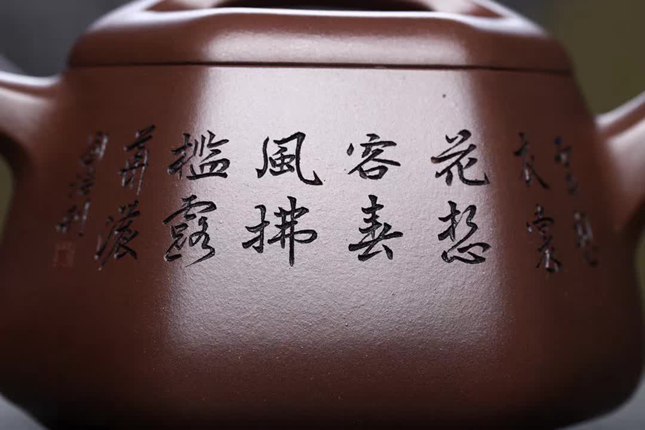 衣裳
花想
容春
風拂
檻露
華濃